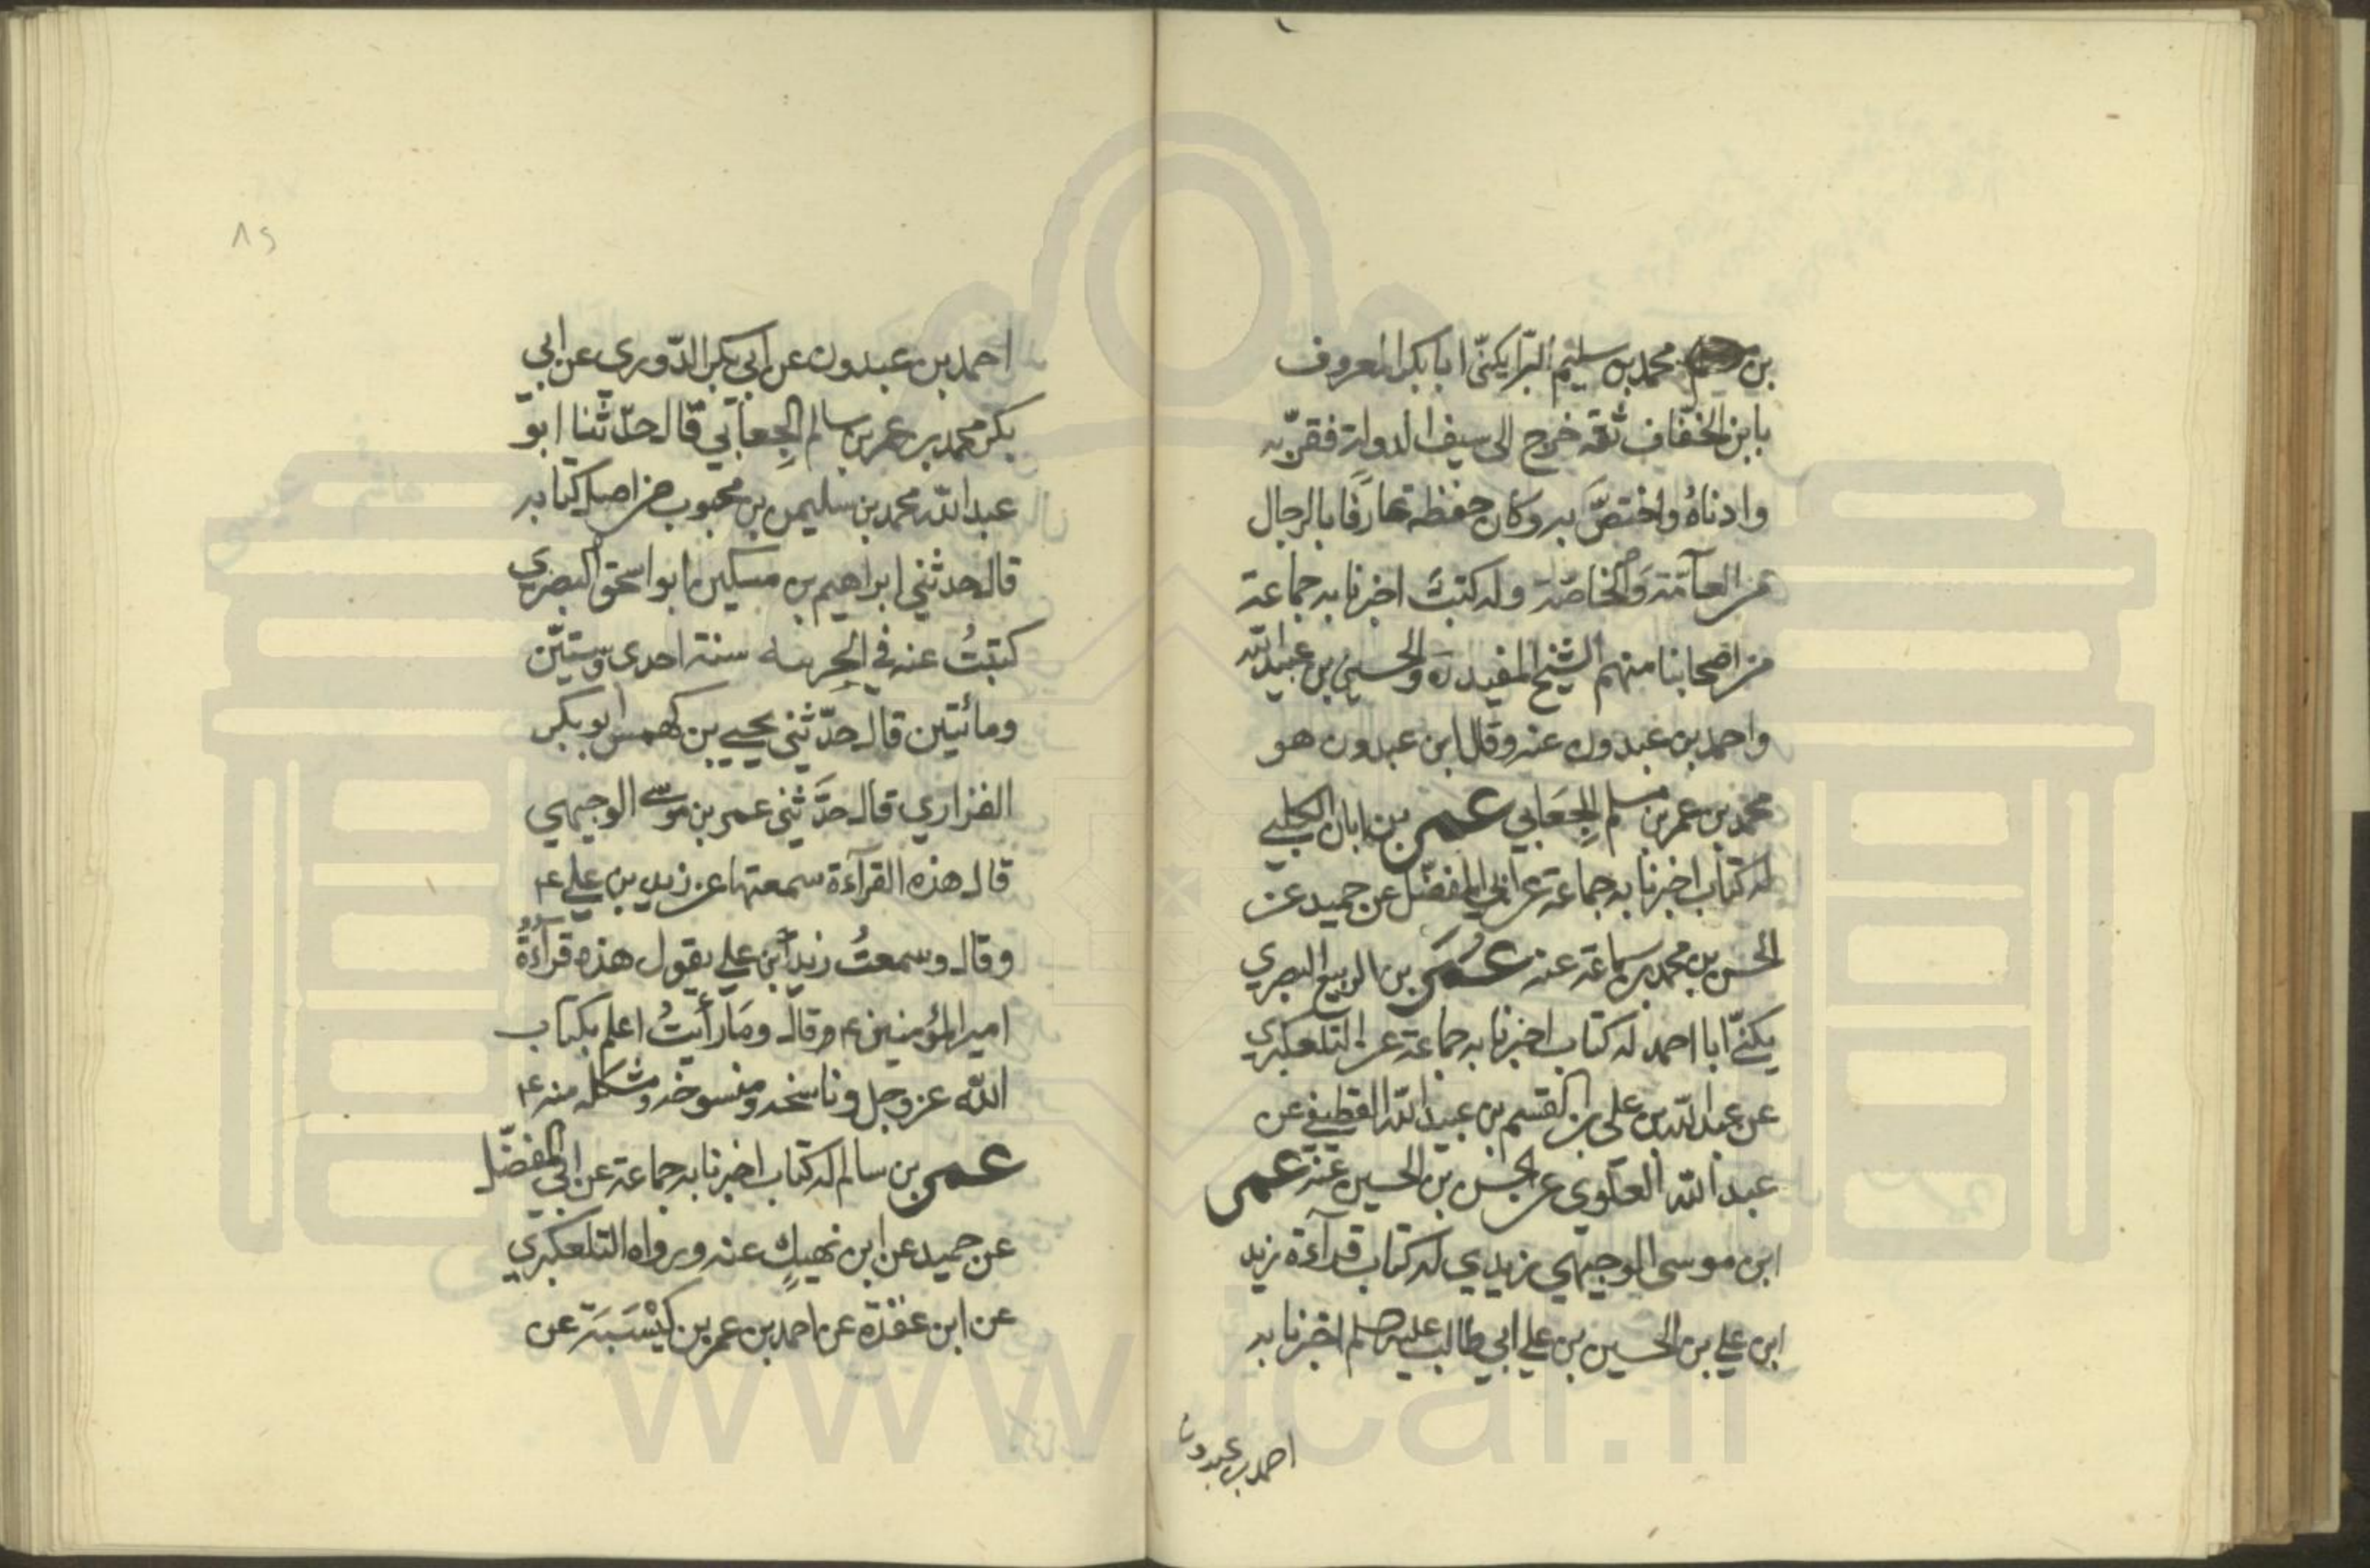 بن محمد بن سليم البرا يكنّى ابا بكر المعروف
بابن الخفاف ثقه خرج الى سيف الدولة فقربه
وادناهُ واختصَّ به وكان حفظه عارفا بالرجال
من العآمّة والخاصّة وله كتب اخبرنا به جماعة
من اصحابنا منهم الشيخ المفيد ره والحسين بن عبيد الله
واحمد بن عبدون عنه وقال ابن عبدون هو
محمد بن عمر بن مسلم الجِعَابي عمر بن ابان الكلبي
له كتاب اخبرنا به جماعة عن ابي المفضّل عن حميد عن
الحسن بن محمد بن سماعة عنه عُمَر بن الربيع البصري
يكنّى ابا احمد له كتاب اخبرنا به جماعة عن التلعكبري
عن عبد الله بن علي بن القسم بن عبيد الله القطيفي عن
عبد الله العلوي عن الحسن بن الحسين عنه عمر
ابن موسى الوجيهي زيدي له كتاب قرآءة زيد
ابن علي بن الحسين بن علي ابي طالب عليه اخبرنا به
احمد بن عبدون
٨٢
احمد بن عبدون عن ابي بكر الدّوري عن ابي
بكر محمد بن عمر بن سالم الجِعابي قال حدّثنا ابو
عبد الله محمد بن سليمن بن محبوب من اصل كتابه
قال حدثني ابراهيم بن مسكين ابو اسحق البصري
كتبتُ عنه في سنة احدى وستيّن
ومائتين قال حدّثني يحيي بن كهمس ابو بكر
الفزاري قال حدَّثني عمر بن موسى الوجيهي
قال هذه القرآءة سمعتها عن زيد بن علي ع
وقال وسمعتُ زيد ابن علي يقول هذه قرآءةُ
امير المؤمنين ع وقال ومَا رأيتُ اعلم بكتاب
الله عز وجل وناسخه ومنسوخه ومشكله منه ع
عمر بن سالم له كتاب اخبرنا به جماعة عن ابي المفضّل
عن حميد عن ابن نهيكٍ عنه ورواه التلعكبري
عن ابن عقدة عن احمد بن عمر بن كيْسَبَة عن
www.icar.ir